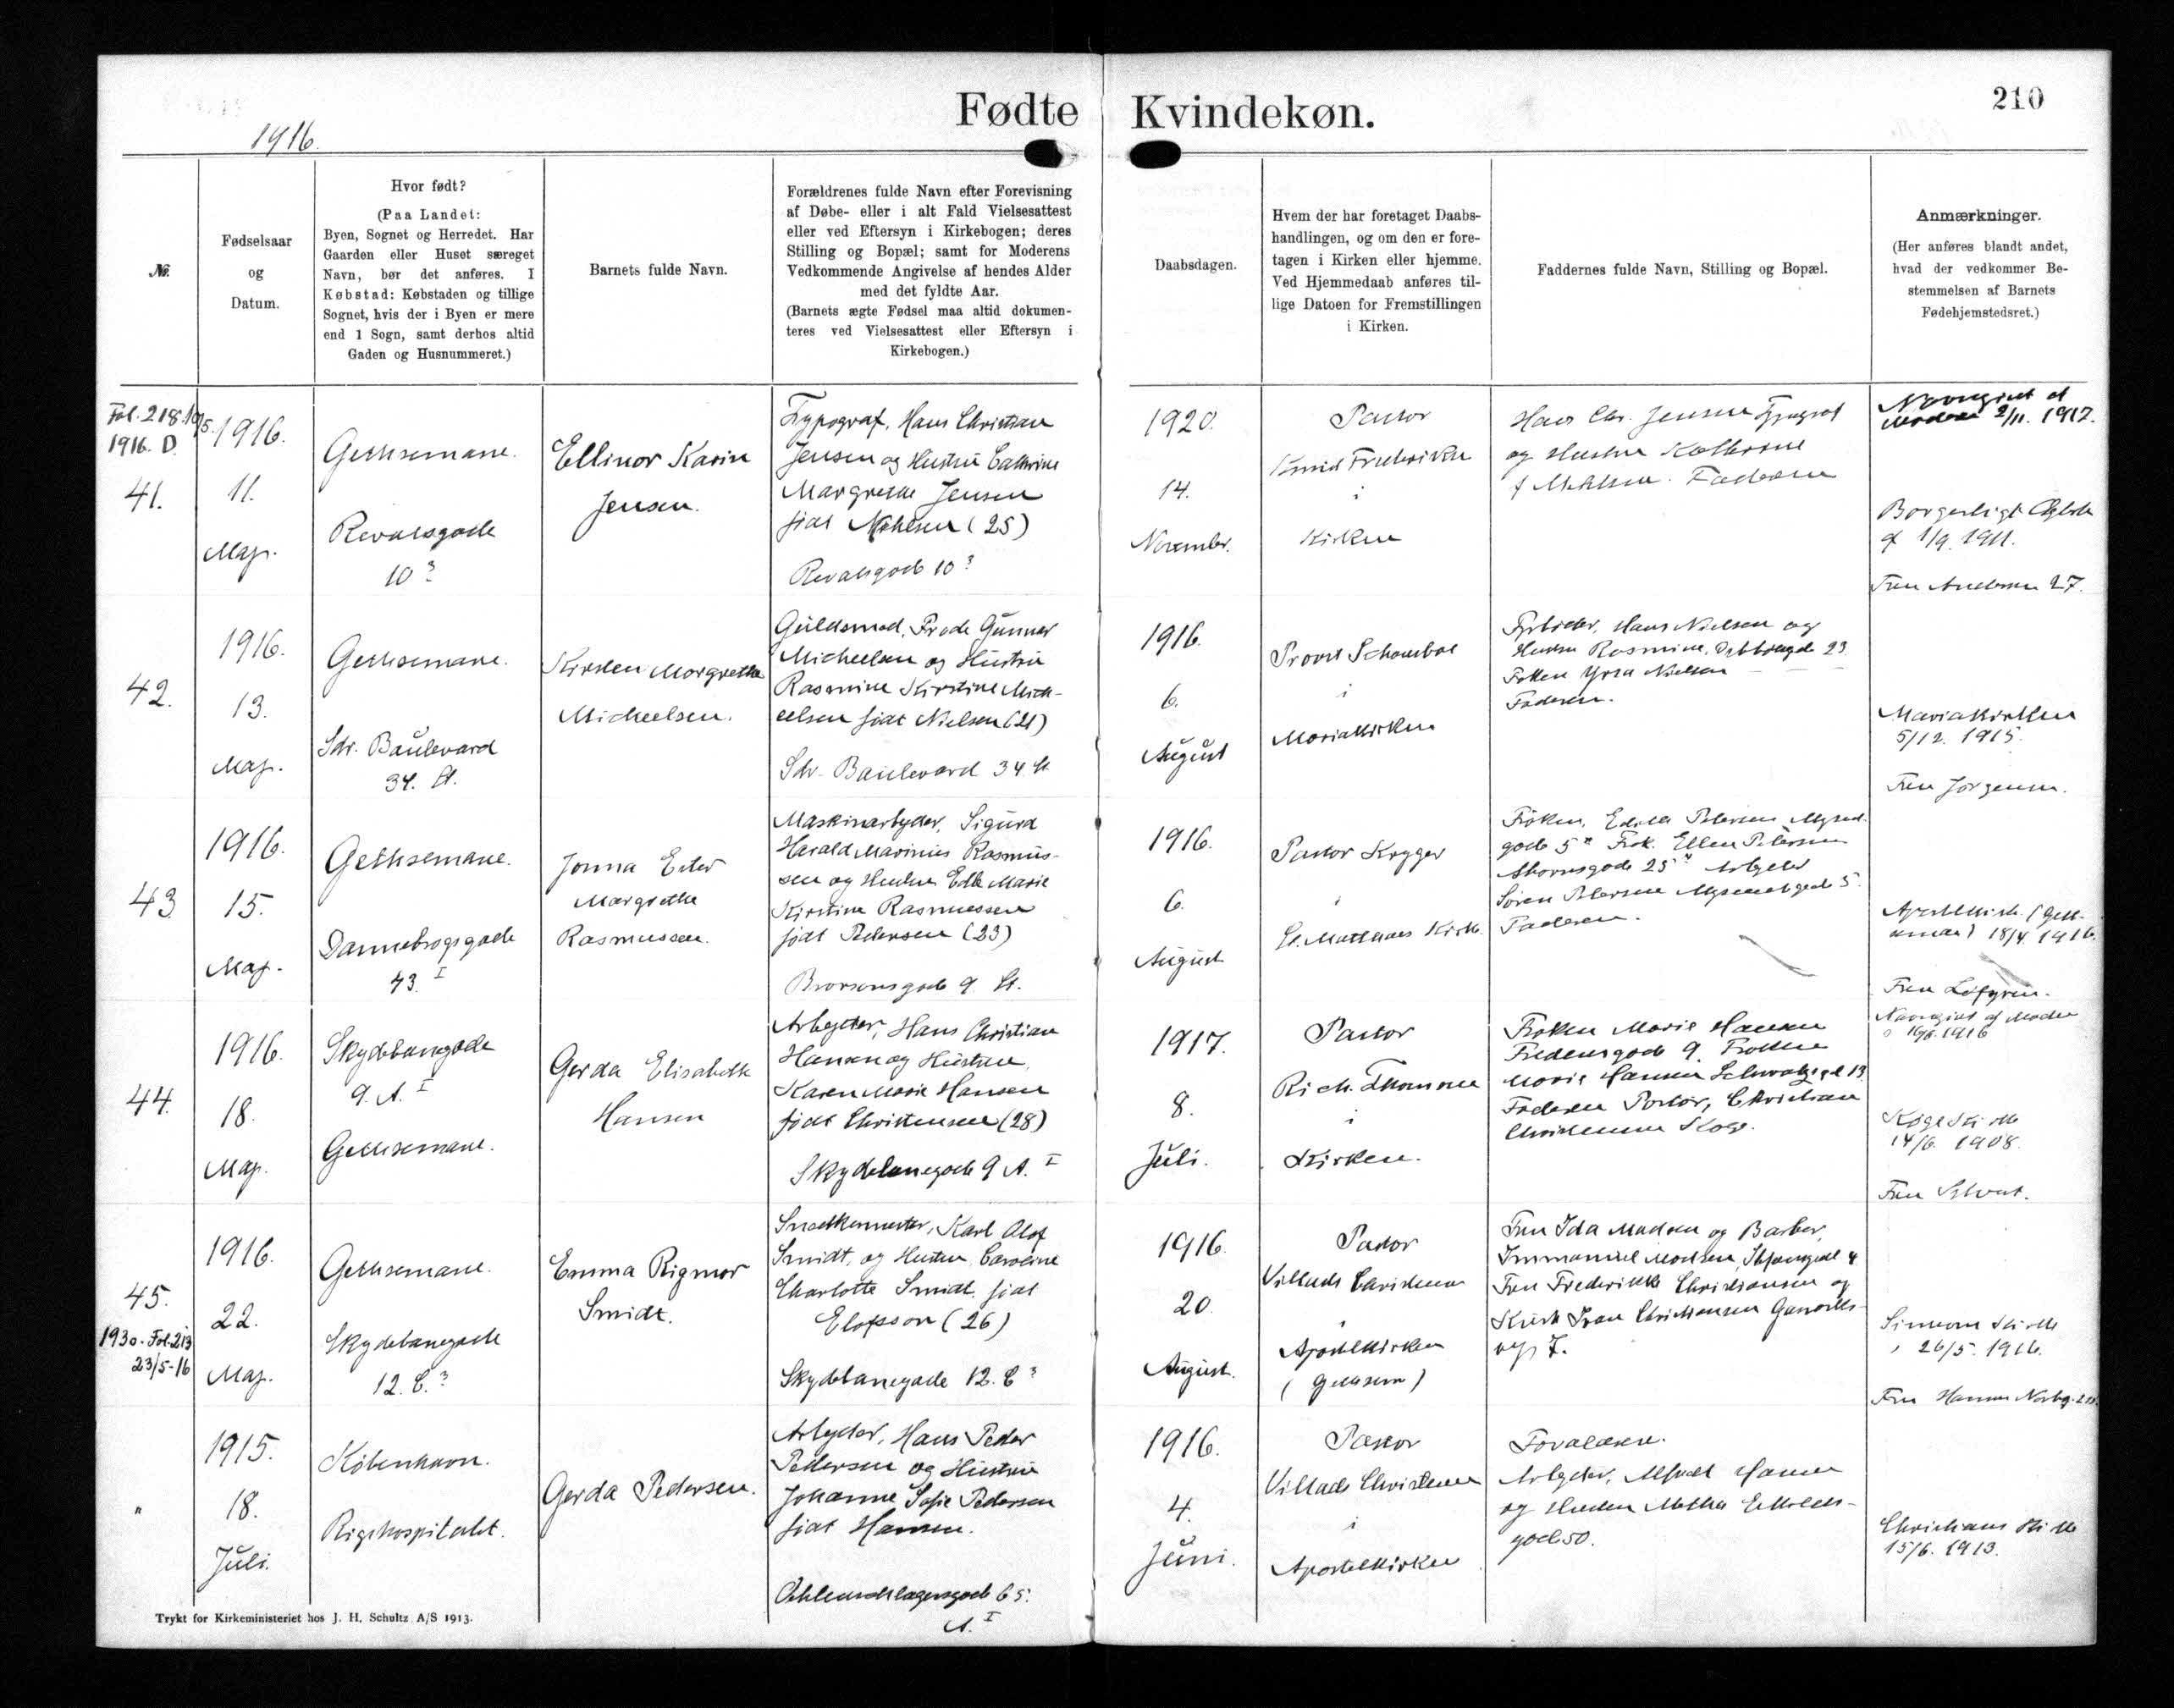 Fødte Kvindekøn.
210
1916.
№.
Fødselsaar
og
Datum.
Hvor født?
(Paa Landet:
Byen, Sognet og Herredet. Har
Gaarden eller Huset særeget
Navn, bør det anføres. I
Købstad: Købstaden og tillige
Sognet, hvis der i Byen er mere
end 1 Sogn, samt derhos altid
Gaden og Husnummeret.)
Barnets fulde Navn.
Forældrenes fulde Navn efter Forevisning
af Døbe- eller i alt Fald Vielsesattest
eller ved Eftersyn i Kirkebogen; deres
Stilling og Bopæl; samt for Moderens
Vedkommende Angivelse af hendes Alder
med det fyldte Aar.
(Barnets ægte Fødsel maa altid dokumen-
teres ved Vielsesattest eller Eftersyn i
Kirkebogen.)
Daabsdagen.
Hvem der har foretaget Daabs-
handlingen, og om den er fore-
tagen i Kirken eller hjemme.
Ved Hjemmedaab anføres til-
lige Datoen for Fremstillingen
i Kirken.
Faddernes fulde Navn, Stilling og Bopæl.
Anmærkninger.
(Her anføres blandt andet,
hvad der vedkommer Be-
stemmelsen af Barnets
Fødehjemstedsret.)
Fol. 218. 19/5.
1916. D.
41.
1916.
11.
Maj.
Gethsemane.
Revalsgade
10 3
Ellinor Karin
Jensen.
Typograf, Hans Christian
Jensen og Hustru Cathrine
Margrethe Jensen
født (25)
Revalsgade 10 3
1920.
14.
November.
Pastor
Knud Frederiksen
i
Kirken
Hans Chr. Jensen Typograf
og Hustru Kathrine
Faderen
Navngivet af
Moderen 2/11. 1917.
Borgerligt
1/9. 1911.
Fru Andersen 27.
42.
1916.
13.
Maj.
Gethsemane.
Sdr. Baulevard
34. St.
Kirsten Margrethe
Micheelsen.
Guldsmed, Frode Gunnar
Micheelsen og Hustru
Rasmine Kirstine Mich-
eelsen født Nielsen (21)
Sdr. Baulevard 34 St
1916.
6.
August
Provst
i
Mariakirken
Hans Nielsen og
Hustru Rasmine, 23
Frøken Yrsa Nielsen
Faderen.
Mariakirken
5/12. 1915.
Fru Jørgensen.
43
1916.
15.
Maj.
Gethsemane.
Dannebrogsgade
43. I
Jonna Ester
Margrethe
Rasmussen.
Maskinarbejder, Sigurd
Harald Marinus Rasmus-
sen og Hustru Marie
Kirstine Rasmussen
født Pedersen (23)
Brorsonsgade 9. St.
1916.
6.
August
Pastor Kryger
i
St. Matthæus Kirke.
Frøken, Petersen
gade 5 Frk. Ellen Petersen
25 Arbejder
Søren Petersen 5.
Faderen.
18/4. 1916.
Fru Løfgren.
44.
1916.
18.
Maj.
Skydebanegade
9. A. I
Gethsemane.
Gerda Elisabeth
Hansen
Arbejder, Hans Christian
Hansen og Hustru,
Karen Marie Hansen
født Christensen (28)
Skydebanegade 9 A. I
1917.
8.
Juli.
Pastor
Rich. Thomsen
i
Kirken.
Frøken Marie Hansen
Fredensgade 9. Frøken
Marie Hansen 13.
Faderen Christian
Christensen Køge.
Navngivet af Moder
1916
Køge Kirke
14/6. 1908.
Fru
45.
1930. Fol. 213
23/5-16
1916.
22.
Maj.
Gethsemane.
Skydebanegade
12. C. 3
Emma Rigmor
Smidt.
Snedkermester, Karl Olof
Smidt, og Hustru Caroline
Charlotte Smidt, født
Elofsson (26)
Skydebanegade 12. C 3
1916.
20.
August.
Pastor
Villads Christensen
i
Apostelkirken
(Gethsem)
Fru Ida Madsen og Barber,
Immanuel Madsen, 4
Fru Frederikke Christiansen og
Kusk Ivan Christiansen
vej 7.
Simeons Kirke
26/5. 1916.
Fru Hansen
"
1915.
18.
Juli.
København.
Rigshospitalet.
Gerda Pedersen.
Arbejder, Hans Peder
Pedersen og Hustru
Johanne Sofie Pedersen
født Hansen.
Oehlenschlægersgade 65.
A. I
1916.
4.
Juni.
Pastor
Villads Christensen
i
Apostelkirken
Forældrene.
Arbejder, Alfred Hansen
og Hustru Eskolds-
gade 50.
Christians Kirke
15/6. 1913.
Trykt for Kirkeministeriet hos J. H. Schultz A/S 1913.